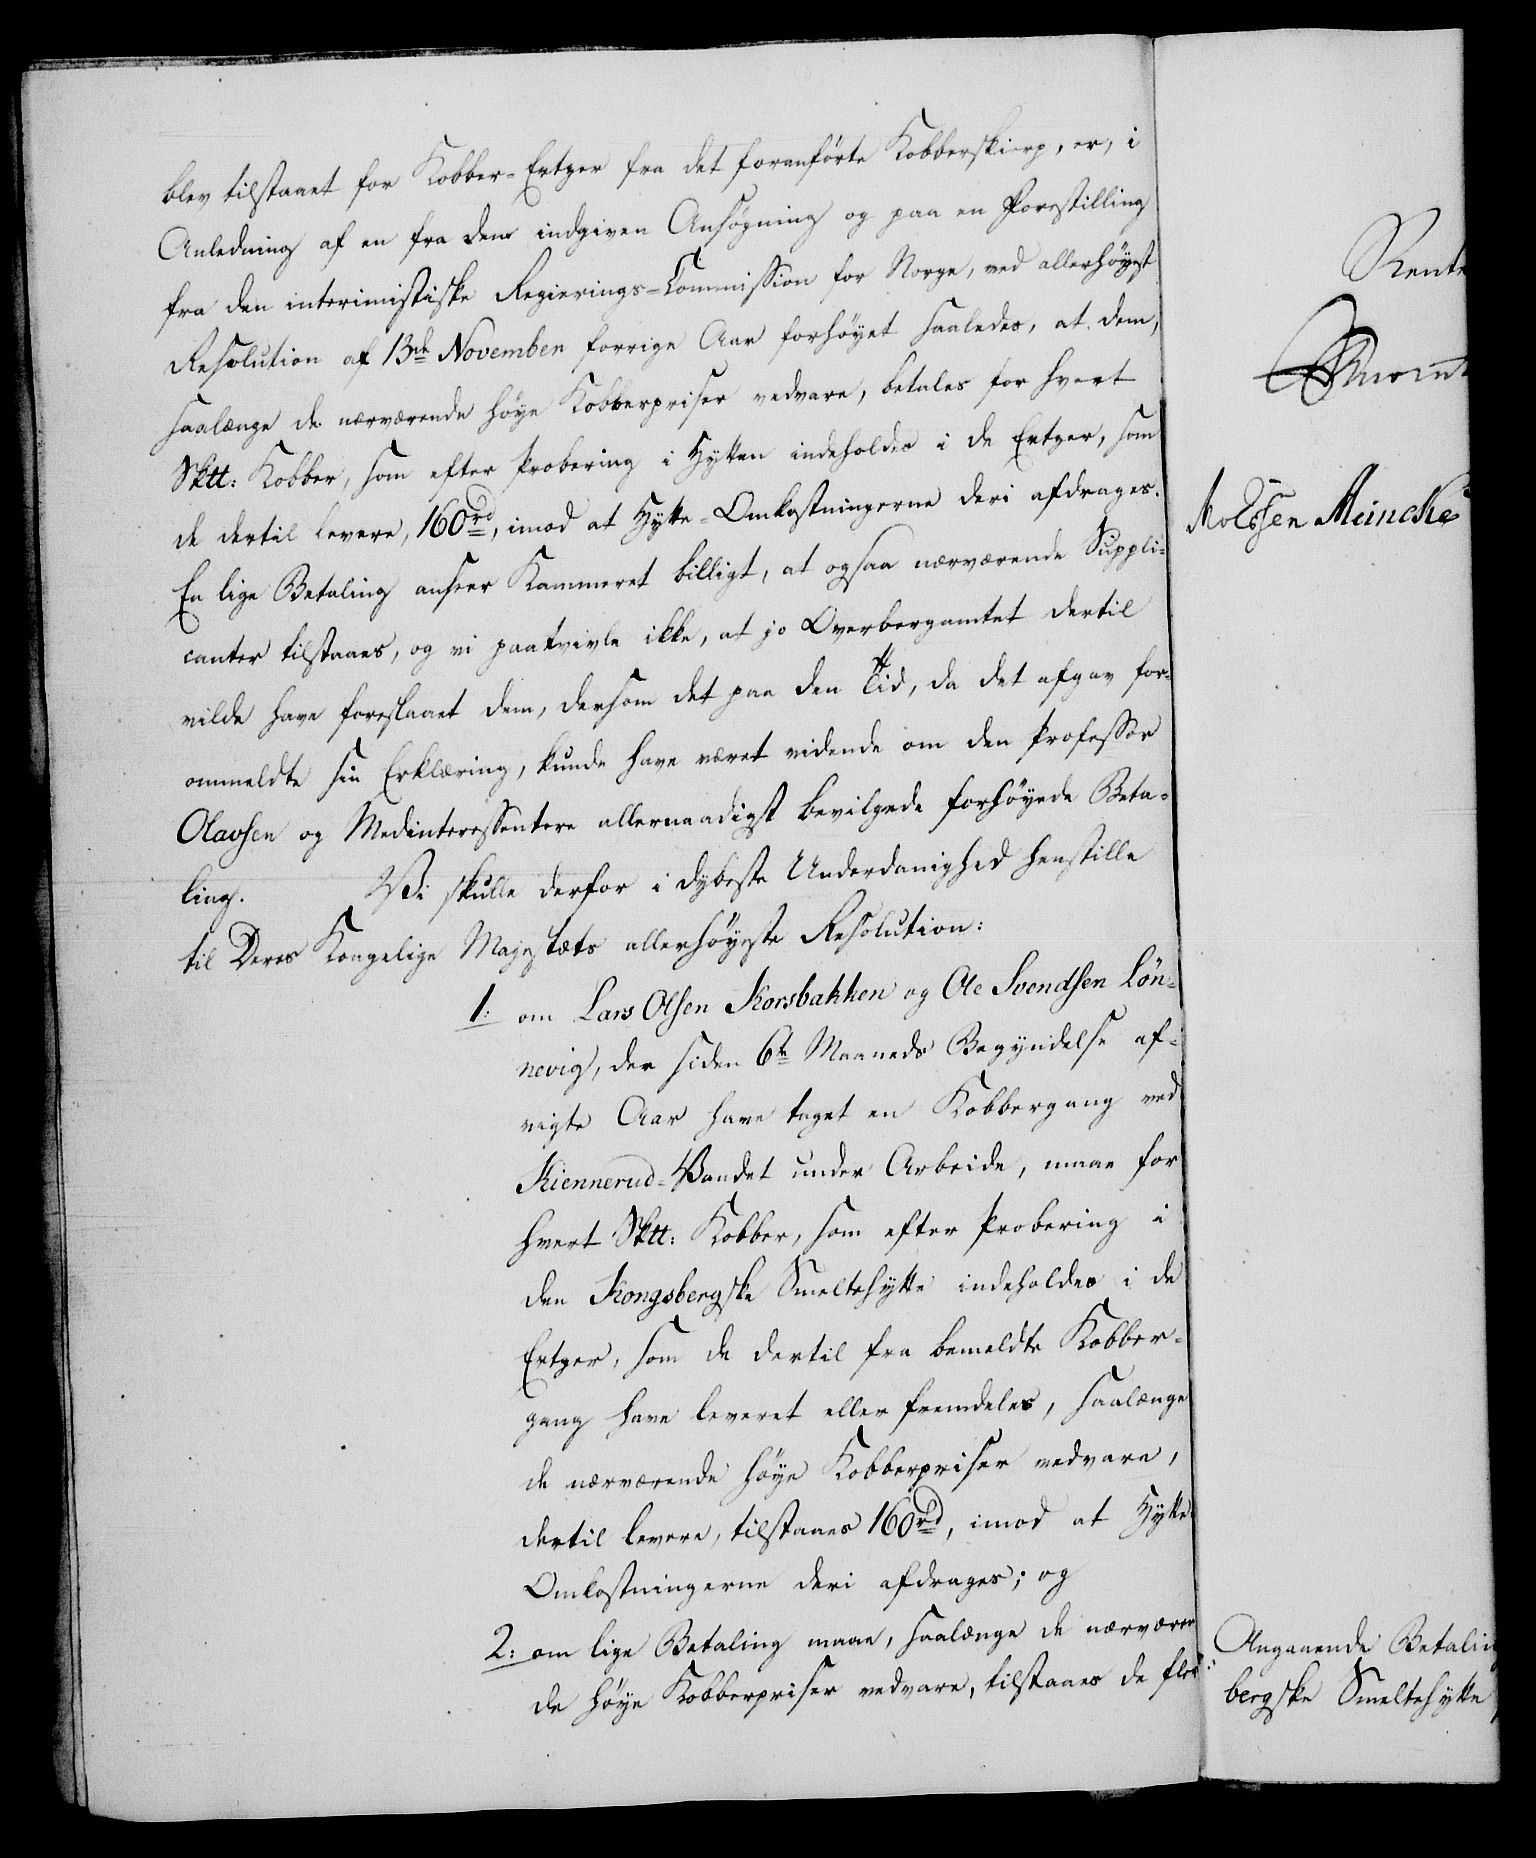 blev tilstaaet for Kobber-Ertzer fra det foranförte Kobberskierp, er, i
Anledning af en fra dem indgiven Ansøgning og paa en Forestilling
fra den interimistiske Regierings-Commission for Norge, ved allerhöyest
Resolution af 13de November forrige Aar forhöyet saaledes, at dem,
saalænge de nærværende höye Kobberpriser vedvare, betales for hvert
Sktt: Kobber, som efter Probering i Hytten indeholdes i de Ertzer, som
de dertil levere, 160rd, imod at Hytte-Omkostningerne deri afdrages.
En lige Betaling anseer Kammeret billigt, at ogsaa nærværende Suppli-
canter tilstaaes, og vi paatvivle ikke, at jo Overbergamtet dertil
vilde have foreslaaet dem, dersom det paa den Tid, da det afgav for-
ommeldte sin Erklæring, kunde have været vidende om den Professor
Olavsen og Medinteressentere allernaadigst bevilgede forhöyede Beta-
ling. Vi skulle derfor i dybeste Underdanighed henstille
til Deres Kongelige Majestæts allerhöyeste Resolution:
1: om Lars Olsen Korsbakken og Ole Svendsen Lön-
nevig, der siden 6te Maaneds Begyndelse af-
vigte Aar have taget en Kobbergang ved
Kiennerud-Vandet under Arbeide, maae for
hvert Sktt: Kobber, som efter Probering i
den Kongsbergske Smeltehytte indeholdes i de
Ertzer, som de dertil fra bemeldte Kobber-
gang have leveret eller fremdeles, saalænge
de nærværende höye Kobberpriser vedvare,
dertil levere, tilstaaes 160rd, imod at Hytte-
Omkostningerne deri afdrages; og
2: om lige Betaling maae, saalænge de nærværen-
de höye Kobberpriser vedvare, tilstaaes de fler-
Rente
Meincke
Angaaende Betalin
bergske Smeltehytte